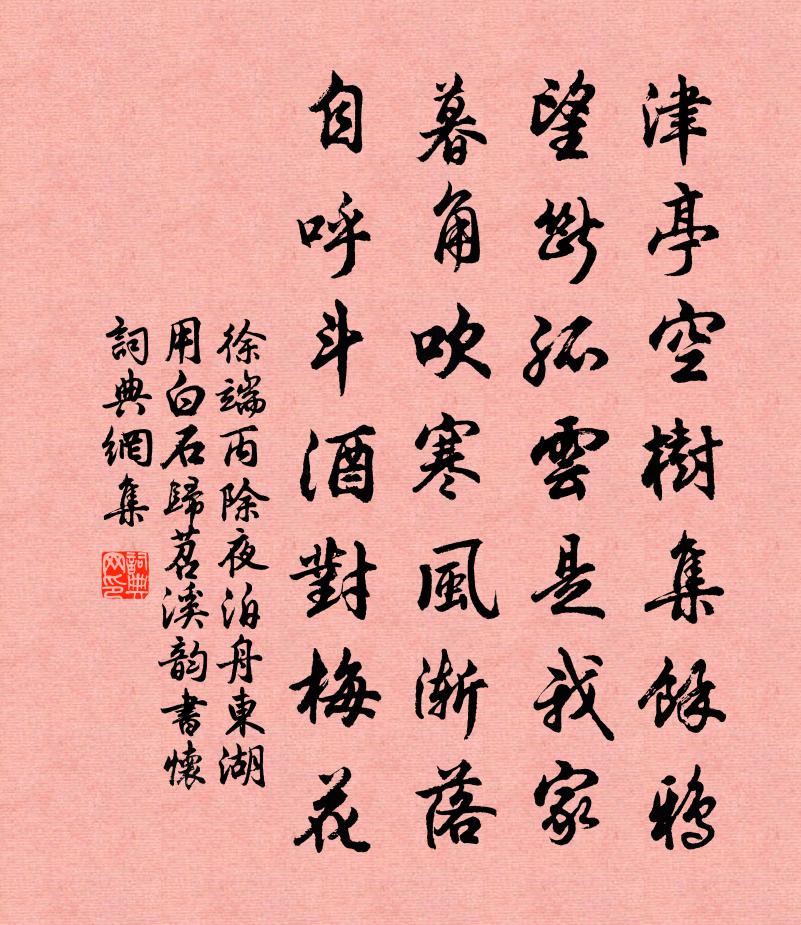 津亭空樹集餘鴉
望斷孤雲是我家
暮角吹寒風漸落
自呼斗酒對梅花
徐端丙除夜泊舟東湖
用白石歸苕溪韵書懷
詞典網集
詞典
网印